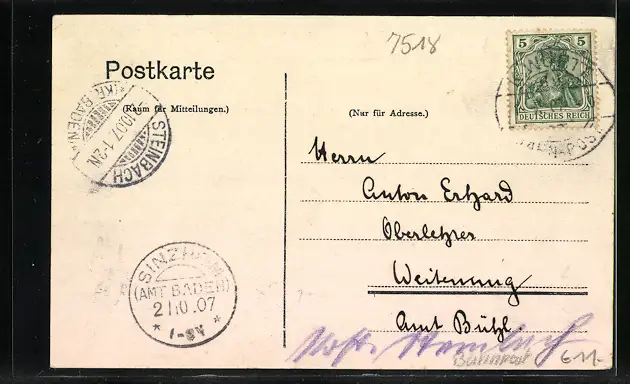 7518
5 5
DEUTSCHES REICH
Postkarte
(Raum für Mitteilungen.)
(Nur für Adresse.)
STEINBACH
10.07.1-2N.
(KR. BADEN)
BAHNPOST
Herrn
Anton Erhard
Oberlehrer
Weitenung
Amt Bühl
SINZHEIM
(AMT BADEN)
21.10.07
* 1-8V *
Post Steinbach
Bahnpost
611-